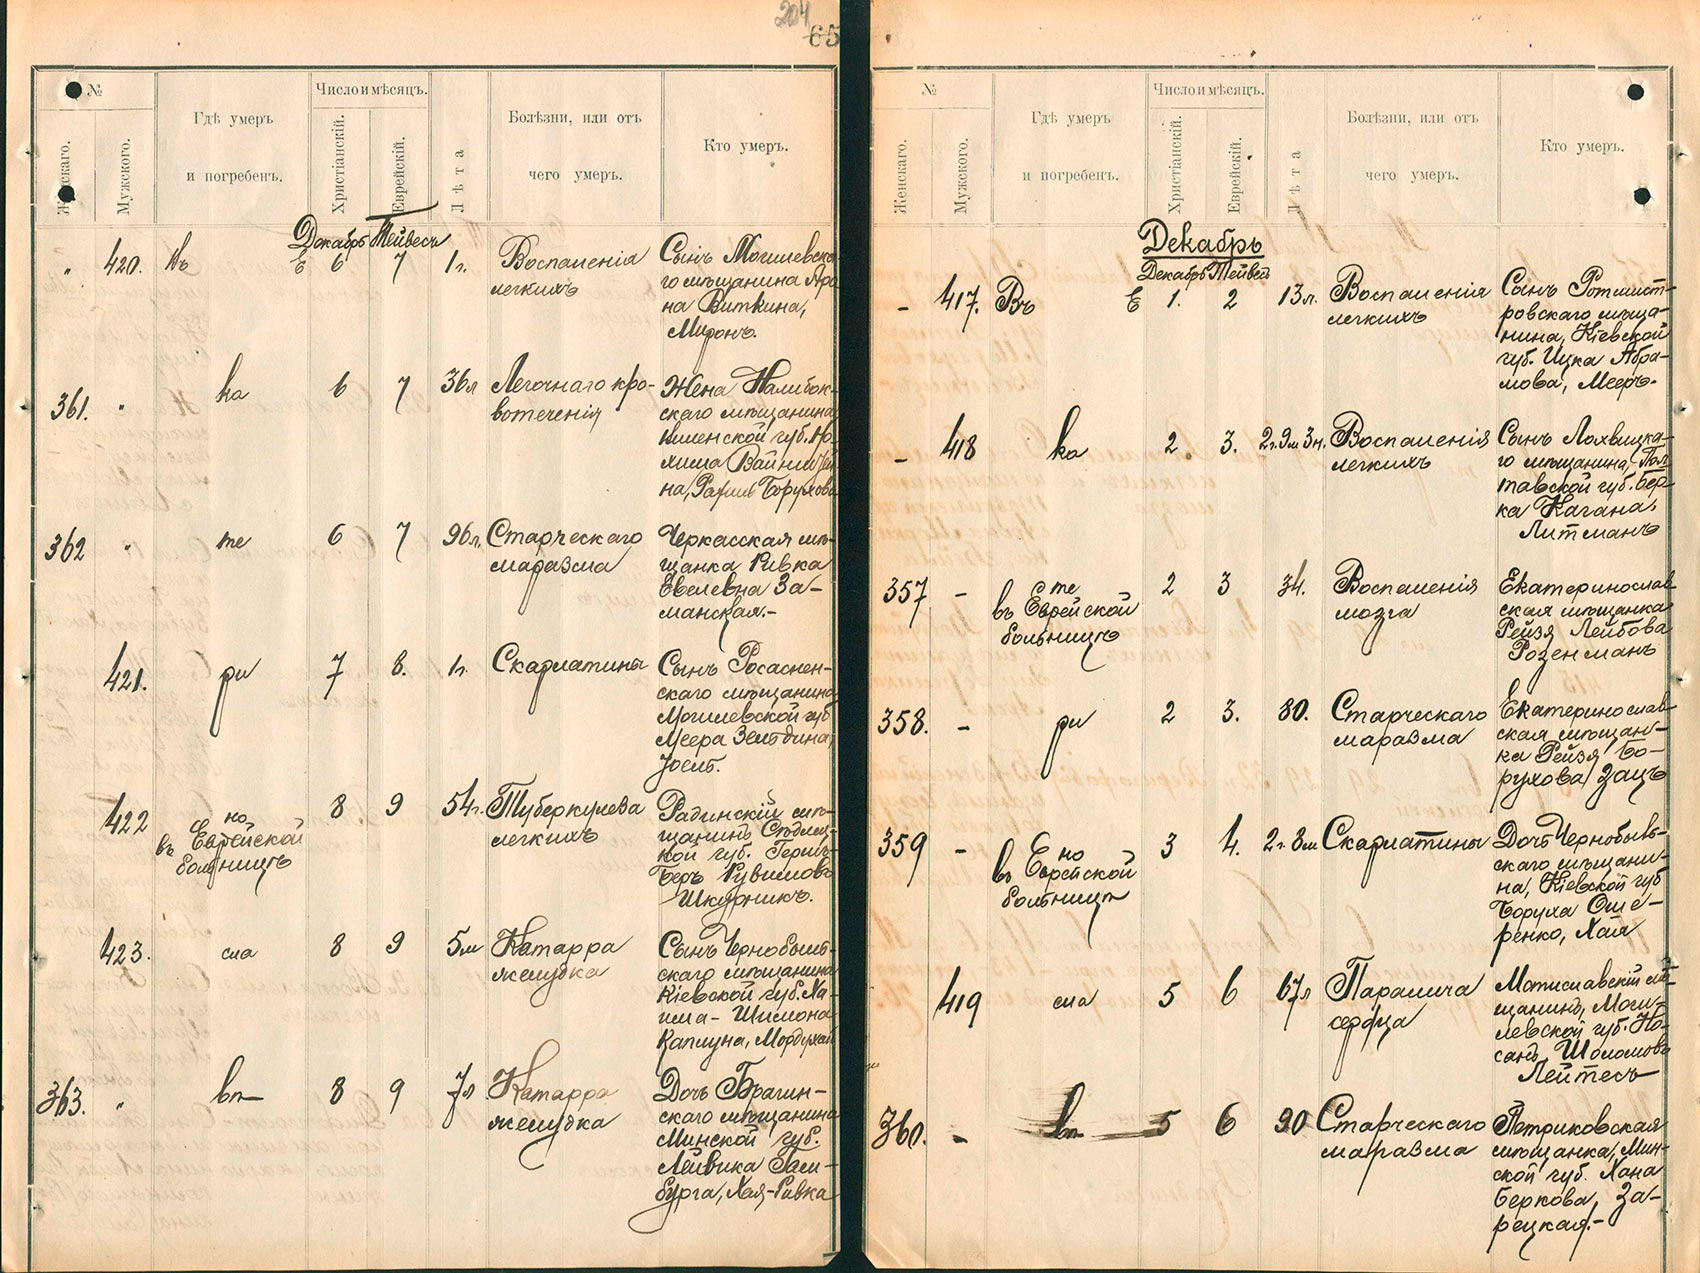 204
65
№
Гдѣ умеръ
и погребенъ.
Число и мѣсяцъ.
Женскаго.
Мужскаго.
Христіанскій.
Еврейскій.
Лѣта
Болѣзни, или отъ
чего умеръ.
Кто умеръ.
Декабрь Тейвесъ
" 420. Въ Е 6 7 1г. Воспаленія
легкихъ
Сынъ Могилевска-
го мѣщанина Аро
на Виткина,
Миронъ.
361. " ка 6 7 36л Легочнаго кро-
вотеченія
Жена Налибок-
скаго мѣщанина
губ.
на, Борухова
362 " те 6 7 96л. Старческаго
маразма
Черкасская мѣ-
щанка Ривка
Евелевна За-
манская.-
421. ри 7 8. 1г. Скарлатины
Сынъ
скаго мѣщанина
Могилевской губ
Меера
422 но
въ Еврейской
больницѣ
8 9 54г. Туберкулеза
легкихъ
Радинскій мѣ-
щанинъ Сѣдлец-
кой губ. Герш-
Беръ Рувимовъ
Шкурникъ.
423. сла 8 9 5м Катарра
желудка
Сынъ Чернобыль-
скаго мѣщанина
Кіевской губ. Ха-
има-Шимона
Каплуна, Мордухай
363. " вѣ 8 9 7л Катарра
желудка
Дочь Брагин-
скаго мѣщанина
Минской губ.
Лейвика Гам-
бурга, Хая-Ривка
№
Гдѣ умеръ
и погребенъ.
Число и мѣсяцъ.
Женскаго.
Мужскаго.
Христіанскій.
Еврейскій.
Лѣта
Болѣзни, или отъ
чего умеръ.
Кто умеръ.
Декабрь
Декабрь Тейвесъ
- 417. Въ Е 1. 2 13л. Воспаленія
легкихъ
Сынъ Ротмист-
ровскаго мѣща-
нина, Кіевской
губ. Ицка Абра-
мова, Мееръ.
- 418 ка 2 3. 2г.9м 3н. Воспаленія
легкихъ
Сынъ Лохвицка-
го мѣщанина, Пол
тавской губ. Бер-
ка Кагана,
Литманъ
357 - сте
въ Еврейской
больницѣ
2 3 34. Воспаленія
мозга
Екатеринослав
ская мѣщанка
Рейзя Лейбова
Розенманъ
358. - ри 2 3. 80. Старческаго
маразма
Екатеринослав-
ская мѣщан-
ка Рейзя Бо-
рухова Зацъ
359 - но
въ Еврейской
больницѣ
3 4. 2г. 8м Скарлатины
Дочь Чернобыль-
скаго мѣщани-
на, Кіевской губ
Боруха Оше-
ренко, Хая
419 сла 5 6 67л Паралича
сердца
Мстиславскій мѣ-
щанинъ, Моги-
левской губ. Но-
санъ Шоломовъ
Лейтесъ
360. - вѣ 5 6 90 Старческаго
маразма
Петриковская
мѣщанка, Мин-
ской губ. Хана
Беркова, За-
рецкая.-